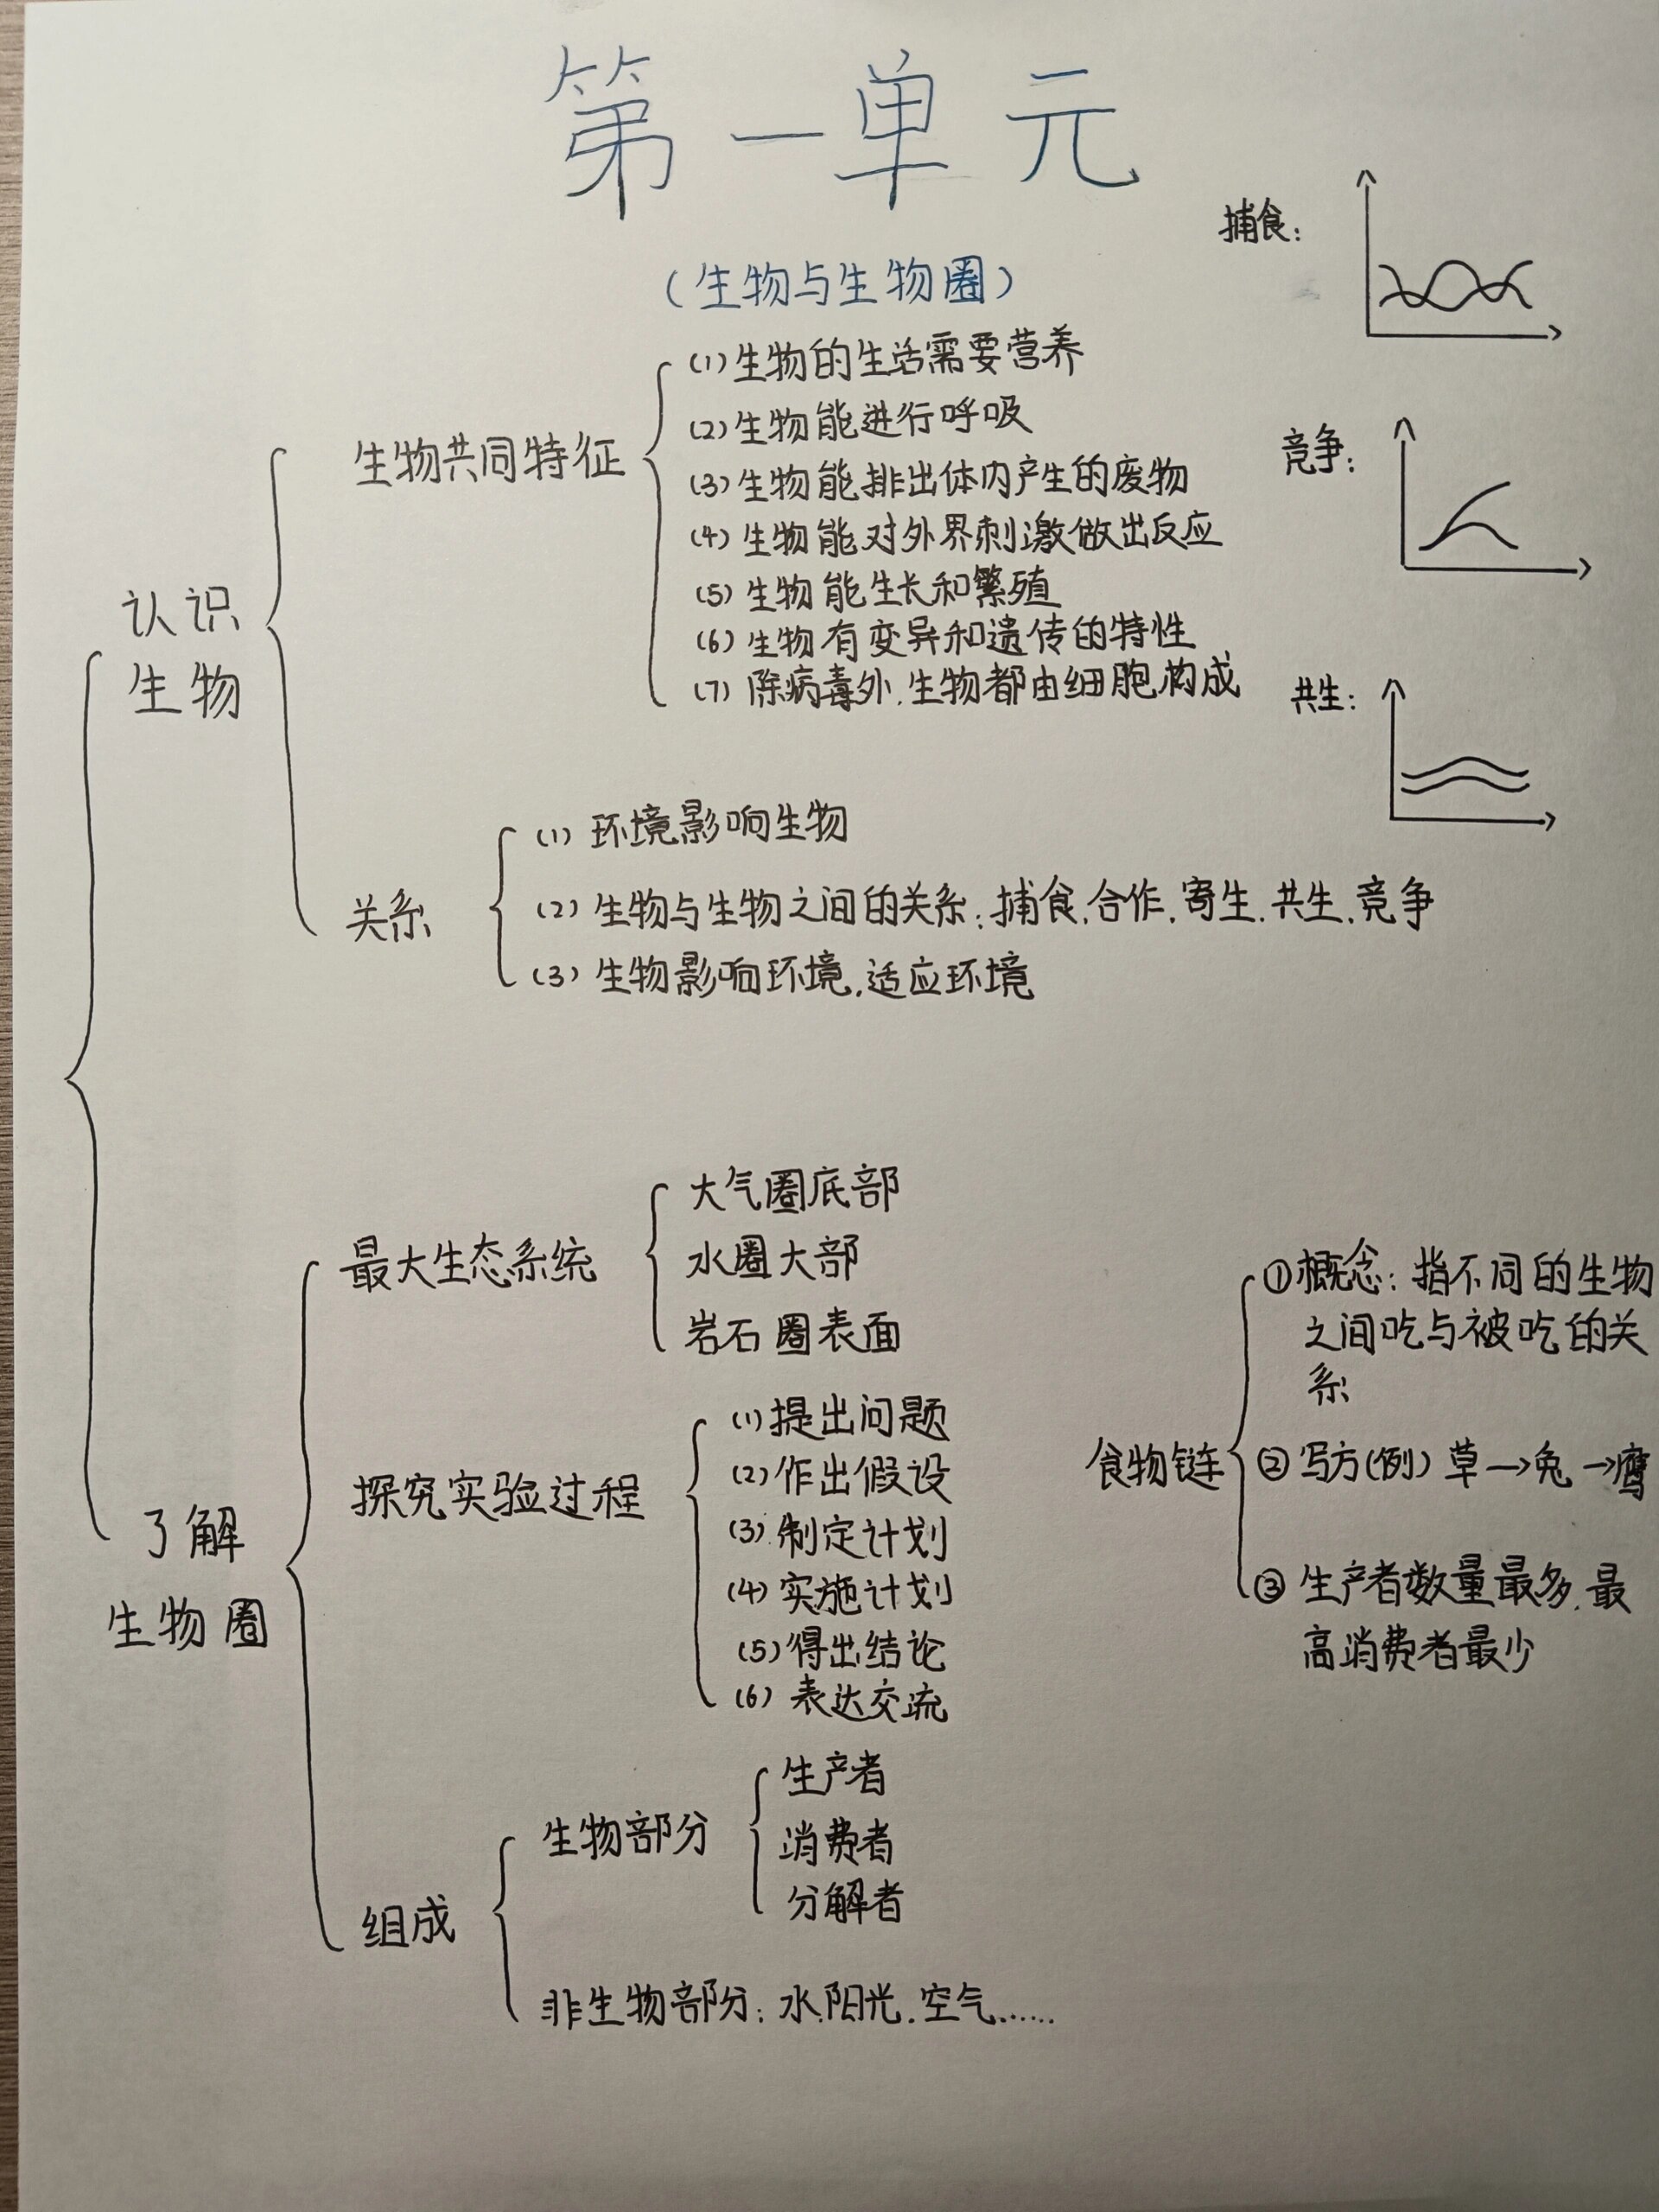 第一单元
(生物与生物圈)
捕食:
竞争:
共生:
认识
生物
生物共同特征
(1)生物的生活需要营养
(2)生物能进行呼吸
(3)生物能排出体内产生的废物
(4)生物能对外界刺激做出反应
(5)生物能生长和繁殖
(6)生物有变异和遗传的特性
(7)除病毒外,生物都由细胞构成
关系
(1)环境影响生物
(2)生物与生物之间的关系:捕食,合作,寄生,共生,竞争
(3)生物影响环境,适应环境
了解
生物圈
最大生态系统
大气圈底部
水圈大部
岩石圈表面
探究实验过程
(1)提出问题
(2)作出假设
(3)制定计划
(4)实施计划
(5)得出结论
(6)表达交流
组成
生物部分
生产者
消费者
分解者
非生物部分:水,阳光,空气……
食物链
①概念:指不同的生物
之间吃与被吃的关
系
②写方(例)草→兔→鹰
③生产者数量最多,最
高消费者最少